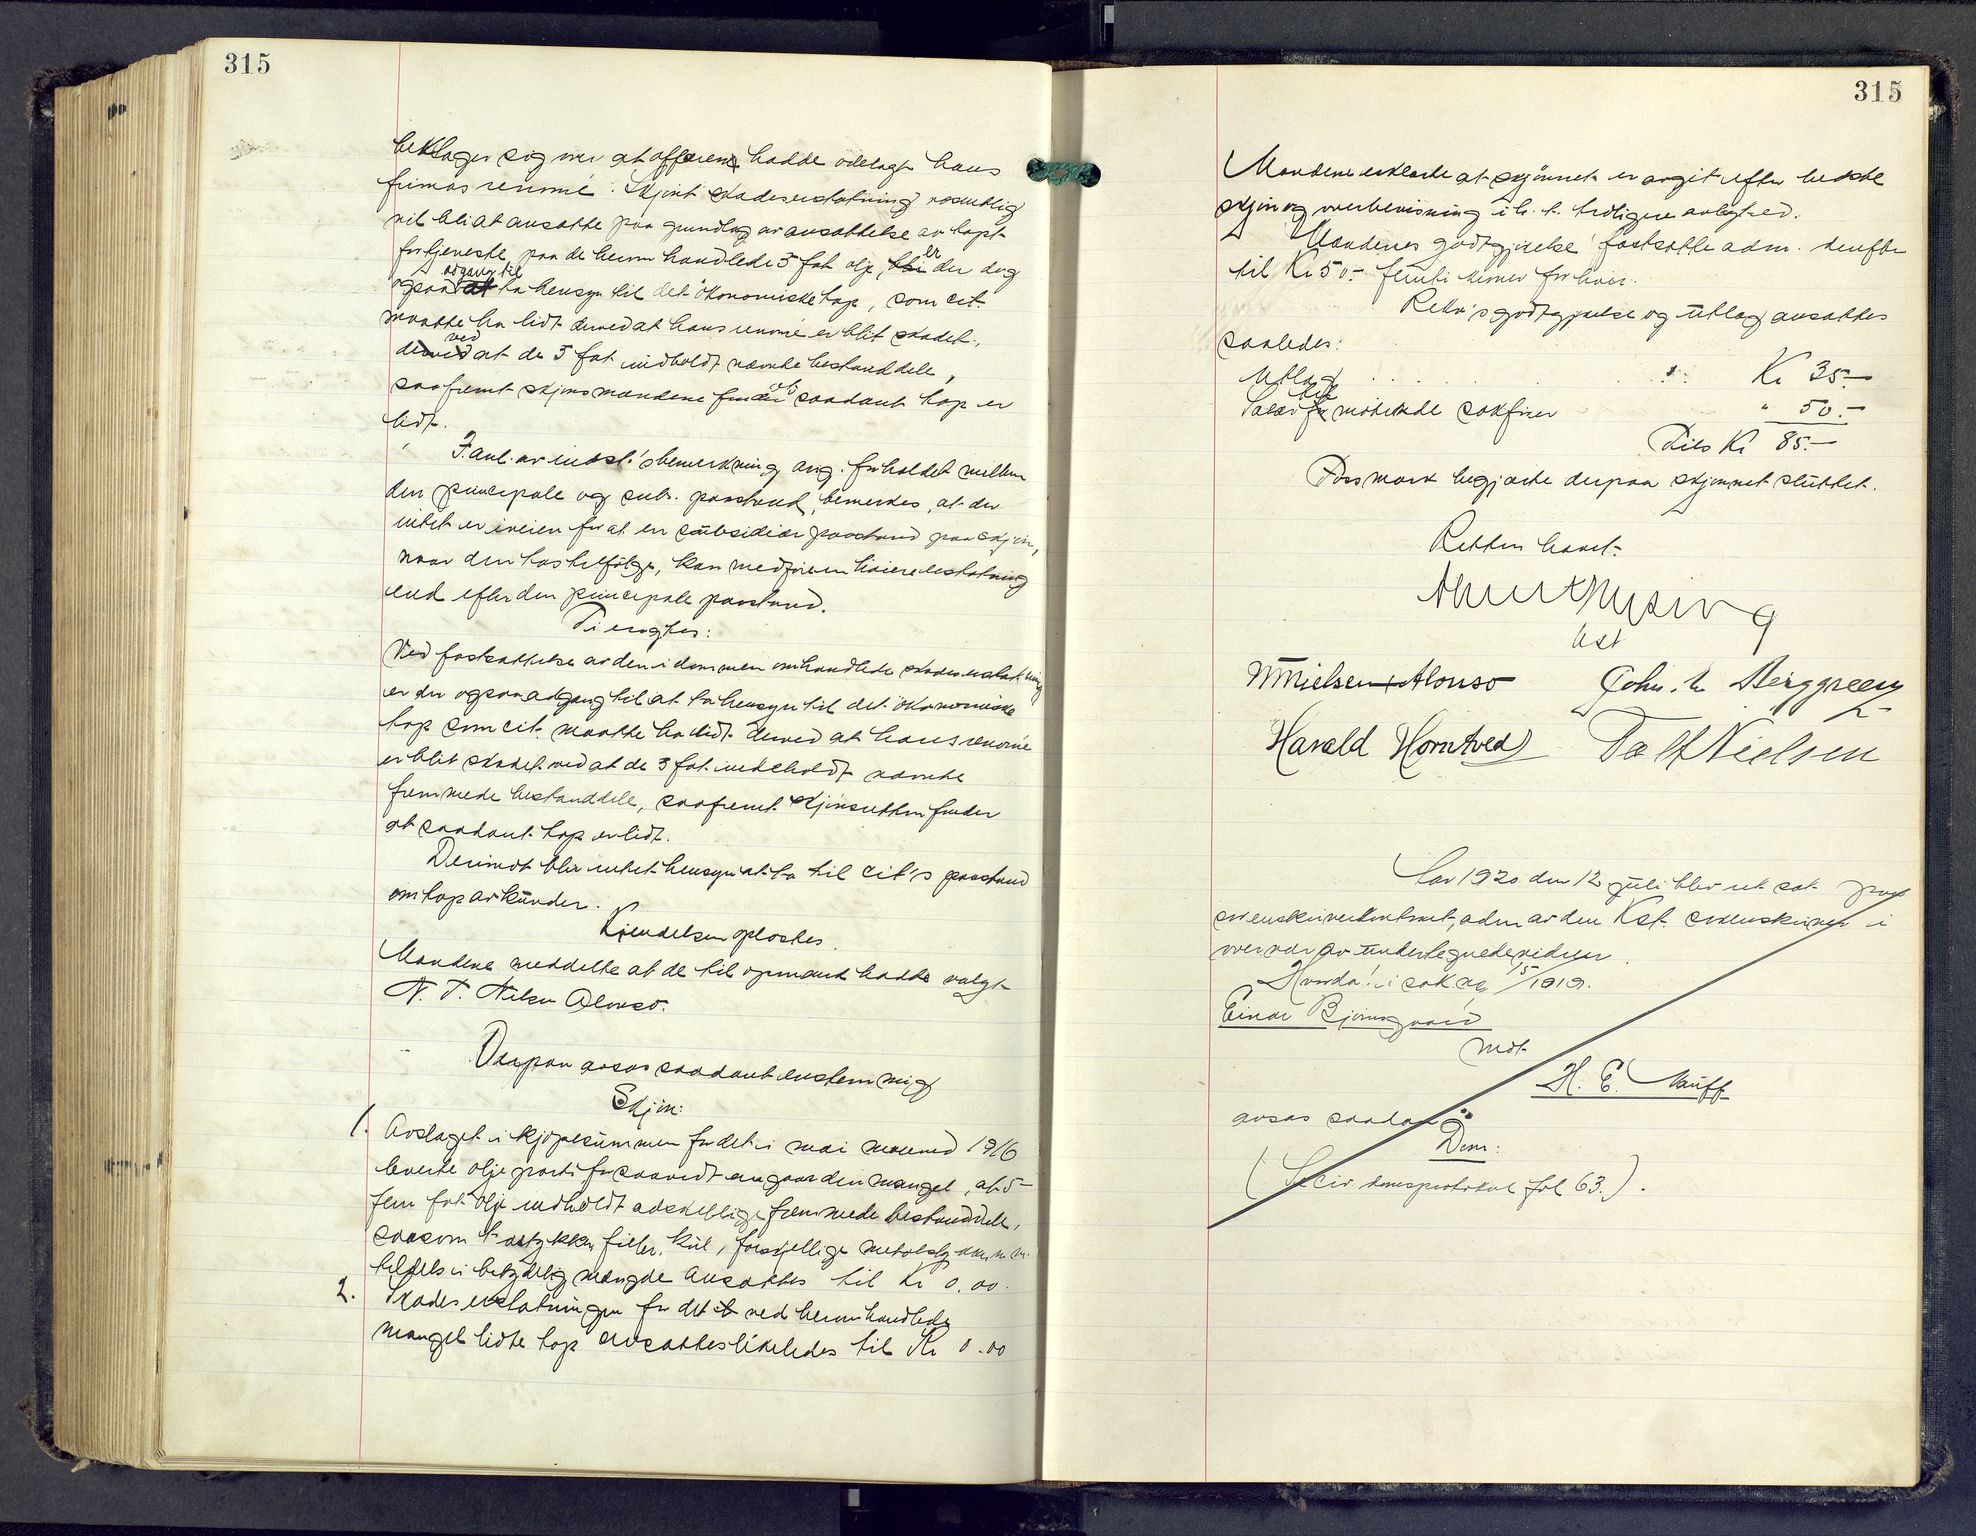 315
beklager sig over at affæren hadde ødelagt hans
firmas renomé. Skjønt skadeserstatning væsentlig
vil bli at ansætte paa grundlag av ansættelse av tapt
fortjeneste paa de heromhandlede 5 fat olje, er der dog
ogsaa adgang til ta hensyn til det økonomiske tap, som cit.
maatte ha lidt derved at hans renomé er blit skadet,
ved at de 5 fat indholdt nævnte bestanddele,
saafremt skjønsmændene finder at saadant tap er
lidt.
I anl. av indst.'s bemerkning ang. forholdet mellem
den principale og subs. paastand, bemerkes, at der
intet er iveien for at en subsidiær paastand paa skjøn,
naar den tas tilfølge, kan medføre en høiere erstatning
end efter den principale paastand.
Ti eragtes:
Ved fastsættelse av den i dommen omhandlede skadeserstatning
er der ogsaa adgang til at ta hensyn til det økonomiske
tap som cit. maatte ha lidt derved at hans renomé
er blit skadet ved at de 5 fat indeholdt nævnte
fremmede bestanddele, saafremt skjønsretten finder
at saadant tap er lidt.
Derimot blir intet hensyn at ta til cit's paastand
om tap av kunder.
Kjendelsen oplæstes.
Mændene meddelte at de til opmand hadde valgt
N. T. Nielsen Alonso.
Derpaa avsas saadant enstemmig
Skjøn:
1. Avslaget i kjøpesummen for det i mai maaned 1916
leverte oljeparti forsaavidt angaar den mangel, at 5-
fem fat olje indholdt adskillige fremmede bestanddele,
saasom træstykker, filler, kul, forskjellige metalstykker m.m.
tildels i betydelig mængde ansættes til Kr 0.00.
2. Skadeserstatningen for det ved heromhandlede
mangel lidte tap ansættes likeledes til Kr 0.00
315
Mændene erklærte at skjønnet er avgit efter bedste
skjøn og overbevisning i h. t. tidligere avlagt ed.
Mændenes godtgjørelse fastsatte adm. derefter
til Kr 50.- femti kroner for hver.
Rekv's godtgjørelse og utlæg ansættes
saaledes:
Utlæg . . . . Kr 35.-
Salær til møtende sakfører " 50.-
Tils Kr 85.-
Passmark begjærte derpaa skjønnet sluttet.
Retten hævet.
cst
N T Nielsen-Alonso John. L. Berggreen
Harald Horntvedt Talf Nielsen
Aar 1920 den 12 juli blev ret sat paa
sorenskriverkontoret, adm av den Kst. sorenskriver i
overvær av undertegnede vidner.
Hvorda! i sak 15/1919.
Einar Bjerngaard
mot
H. E. Nauff
avsas saadan
Dom:
(Se civ domsprotokol fol 63.).